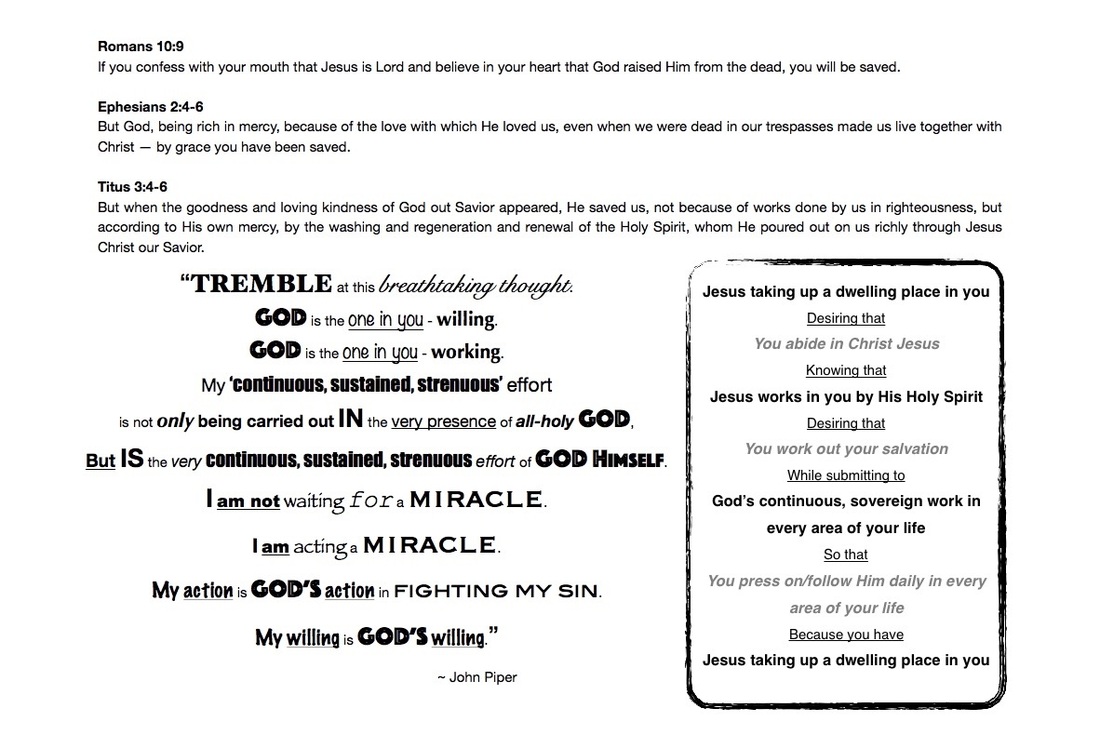 Romans 10:9
If you confess with your mouth that Jesus is Lord and believe in your heart that God raised Him from the dead, you will be saved.
Ephesians 2:4-6
But God, being rich in mercy, because of the love with which He loved us, even when we were dead in our trespasses made us live together with
Christ — by grace you have been saved.
Titus 3:4-6
But when the goodness and loving kindness of God out Savior appeared, He saved us, not because of works done by us in righteousness, but
according to His own mercy, by the washing and regeneration and renewal of the Holy Spirit, whom He poured out on us richly through Jesus
Christ our Savior.
“TREMBLE at this breathtaking thought.
GOD is the one in you - willing.
GOD is the one in you - working.
My ‘continuous, sustained, strenuous’ effort
is not only being carried out IN the very presence of all-holy GOD,
But IS the very continuous, sustained, strenuous effort of GOD HIMSELF.
I am not waiting for a MIRACLE.
I am acting a MIRACLE.
My action is GOD’S action in FIGHTING MY SIN.
My willing is GOD’S willing.”
~ John Piper
Jesus taking up a dwelling place in you
Desiring that
You abide in Christ Jesus
Knowing that
Jesus works in you by His Holy Spirit
Desiring that
You work out your salvation
While submitting to
God’s continuous, sovereign work in
every area of your life
So that
You press on/follow Him daily in every
area of your life
Because you have
Jesus taking up a dwelling place in you